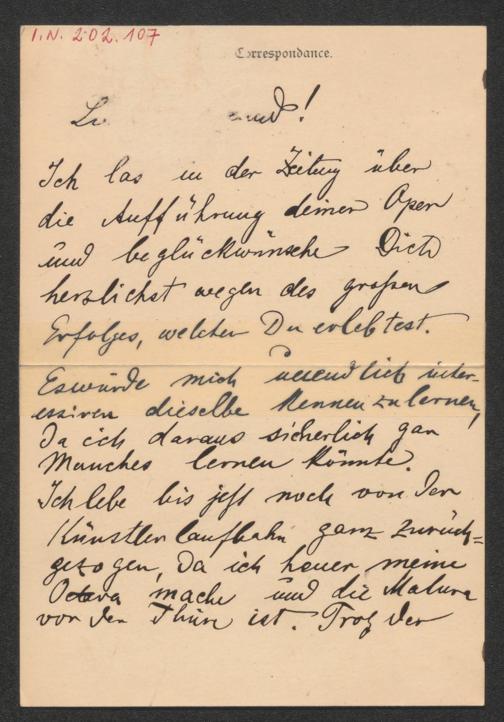 I.N. 202.107
Correspondance.
Ich las in der Zeitung über
die Aufführung deiner Oper
und beglückwünsche Dich
herzlichst wegen des großen
Erfolges, welchen Du erlebtest.
Es würde mich unendlich inter-
essiren dieselbe kennen zu lernen,
da ich daraus sicherlich gar
Manches lernen könnte.
Ich lebe bis jetzt noch von der
Künstlerlaufbahn ganz zurück=
gezogen, da ich heuer meine
Octava mache und die Matura
vor der Thüre ist. Trotz der